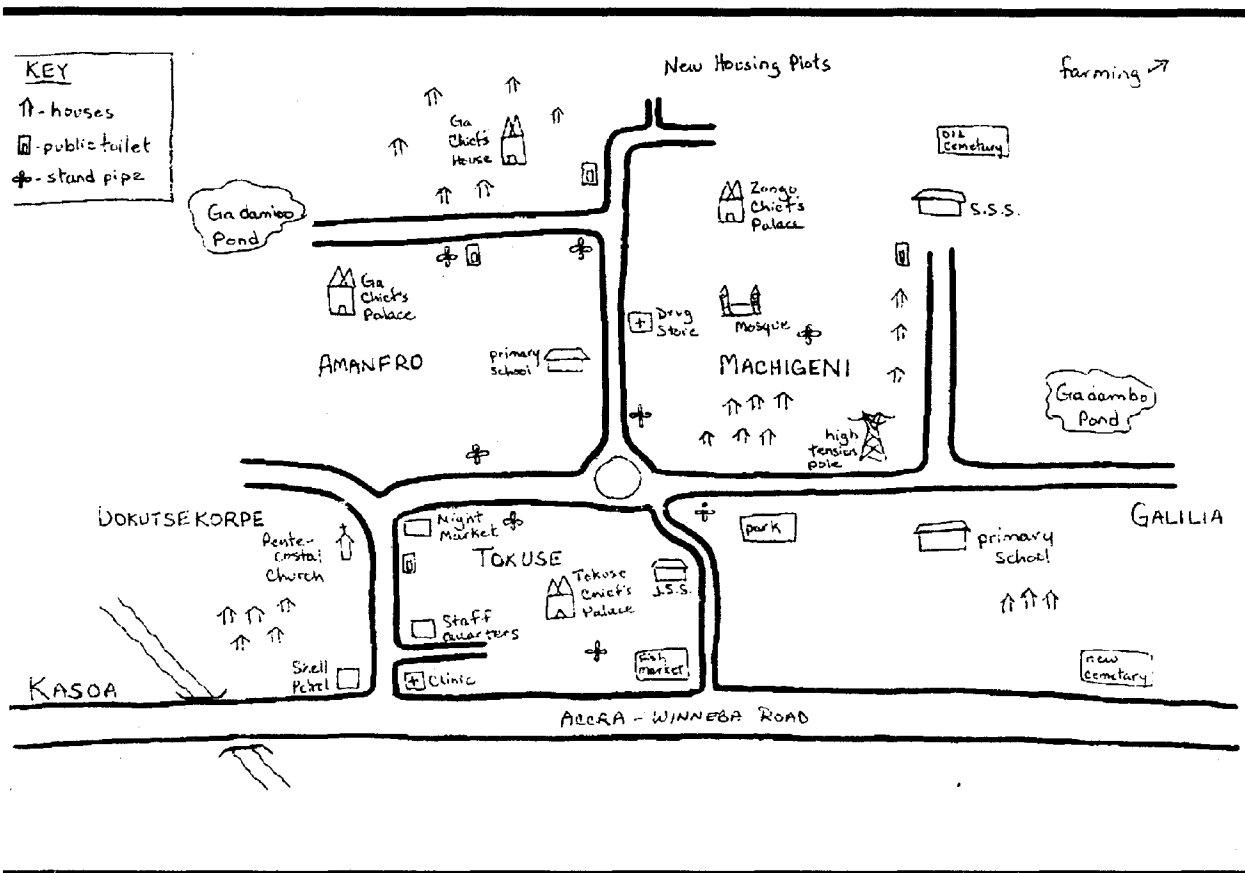 KEY
- houses
- public toilet
- stand pipe
New Housing Plots
farming
Ga
Chief's
House
old
cemetary
Zongo
Chief's
Palace
S.S.S.
Gadambo
Pond
Ga
Chief's
Palace
Drug
Store
Mosque
AMANFRO
primary
School
MACHIGENI
Gadambo
Pond
high
tension
pole
DOKUTSEKORPE
Night
Market
park
GALILIA
Pente-
costal
Church
TOKUSE
primary
School
Tokuse
Chief's
Palace
J.S.S.
Staff
Quarters
Shell
Petrol
Clinic
fish
market
new
cemetary
KASOA
ACCRA - WINNEBA ROAD